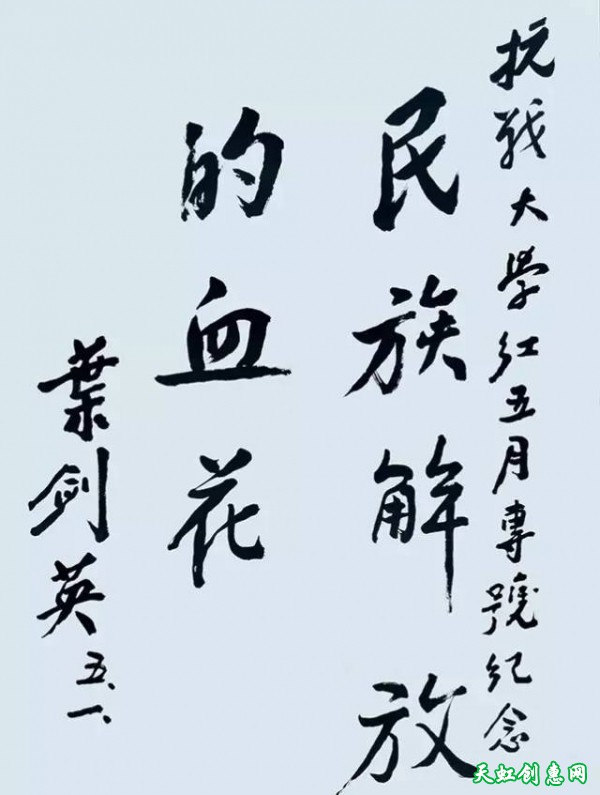 抗战大学红五月專號纪念
民族解放
的血花
葉剑英 五、一、
天虹创惠网